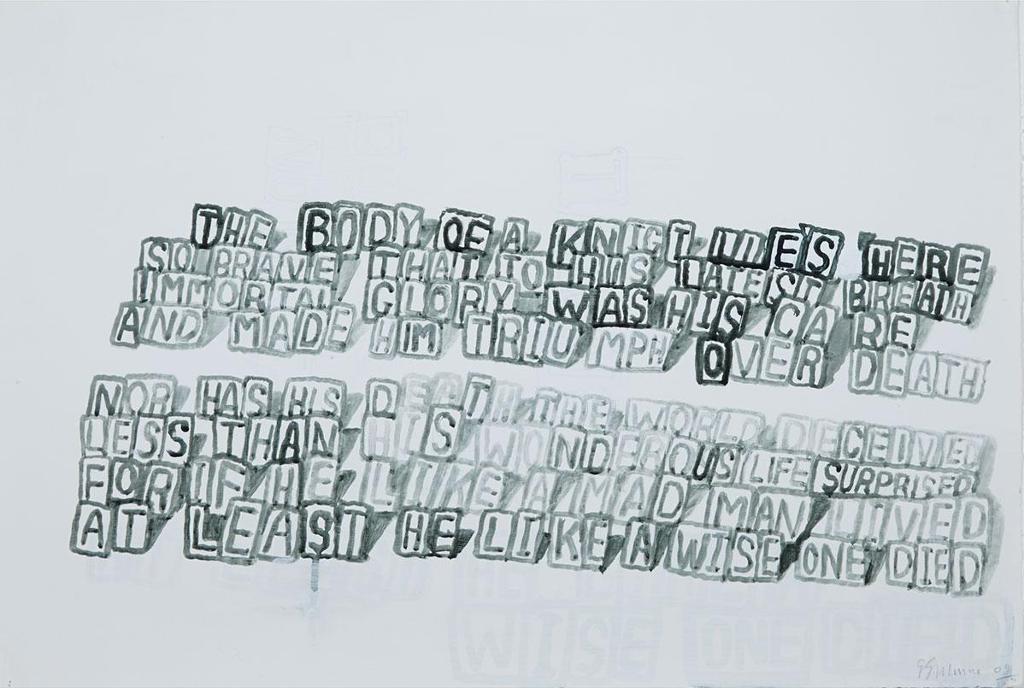 THE BODY OF A KNIGT LIES HERE
SO BRAVE THAT TO HIS LATEST BREATH
IMMORTAL GLORY WAS HIS CARE
AND MADE HIM TRIUMPH OVER DEATH
NOR HAS HIS DEATH THE WORLD DECEIVED
LESS THAN HIS WONDEROUS LIFE SURPRISED
FOR IF HE LIKE A MAD MAN LIVED
AT LEAST HE LIKE A WISE ONE DIED
WISE ONE DIED
09